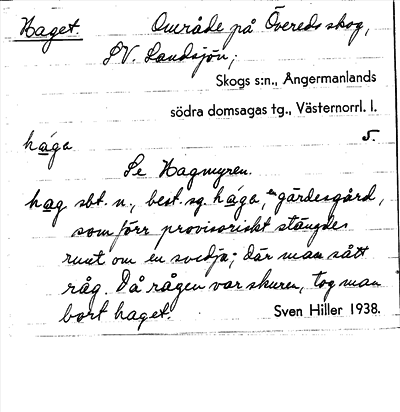 Haget. Område på Övereds skog,
SV. Landsjön;
Skogs s:n., Ångermanlands
södra domsagas tg., Västernorrl. l.
håga 5.
Se Hagmyren.
hag sbt. n., best. sg. håga, "gärdesgård,
som förr provisoriskt stängdes
runt om en svedja; där man sått
råg. Då rågen var skuren, tog man
bort haget." Sven Hiller 1938.